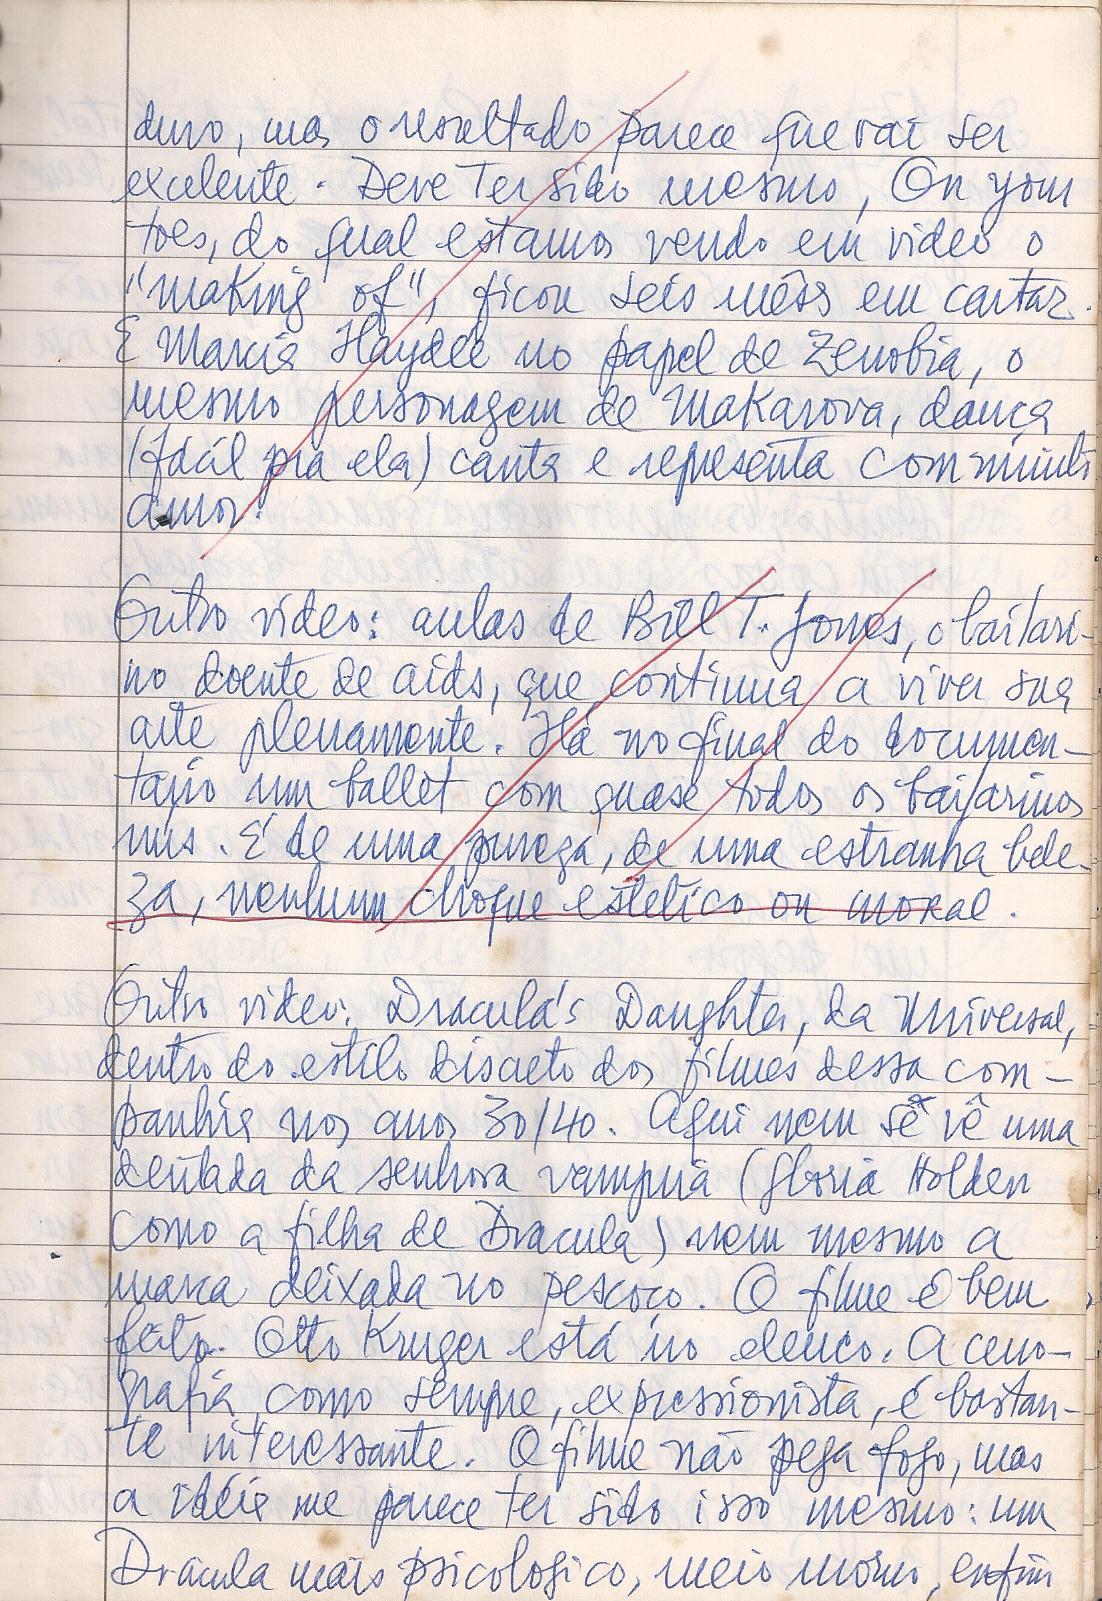 duro, mas o resultado parece que vai ser
excelente. Deve ter sido mesmo, On your
toes, do qual estamos vendo em video o
"making of", ficou seis mêses em cartaz.
E Marcia Haydée no papel de Zenobia, o
mesmo personagem de Makarova, dança
(fácil pra ela) canta e representa com muito
amor.
Outro video: aulas de Bill T. Jones, o bailari-
no doente de aids, que continua a viver sua
arte plenamente. Há no final do documen-
tario um ballet com quase todos os bailarinos
nus. É de uma pureza, de uma estranha bele-
za, nenhum choque estético ou moral.
Outro video: Dracula's Daughter, da Universal,
dentro do estilo discreto dos filmes dessa com-
panhia nos anos 30/40. Aqui nem se vê uma
dentada da senhora vampira (Gloria Holden
como a filha de Dracula) nem mesmo a
marca deixada no pescoço. O filme é bem
feito. Otto Kruger está no elenco. A ceno-
grafia como sempre, expressionista, é bastan-
te interessante. O filme não pega fogo, mas
a idéia me parece ter sido isso mesmo: um
Dracula mais psicologico, meio morno, enfim